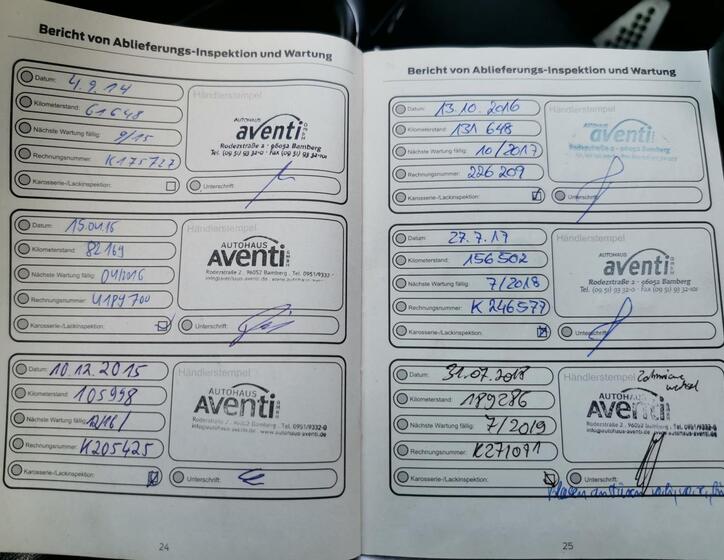 Bericht von Ablieferungs-Inspektion und Wartung
Datum: 4.9.14
Kilometerstand: 61648
Nächste Wartung fällig: 9/15
Rechnungsnummer: K175727
Karosserie-/Lackinspektion:
Händlerstempel
AUTOHAUS
aventi GMBH
Rodezstraße 2 · 96052 Bamberg
Tel. (09 51) 93 32-0 · Fax (09 51) 93 32-101
Unterschrift:
Datum: 15.04.15
Kilometerstand: 82169
Nächste Wartung fällig: 04/2016
Rechnungsnummer:
Karosserie-/Lackinspektion:
Händlerstempel
AUTOHAUS
AVENTI GMBH
Rodezstraße 2, 96052 Bamberg, Tel. 0951/9332-
info@autohaus-aventi.de www.autohaus-aventi.de
Unterschrift:
Datum: 10.12.2015
Kilometerstand: 105998
Nächste Wartung fällig: 12/16/
Rechnungsnummer: K205425
Karosserie-/Lackinspektion:
Händlerstempel
AUTOHAUS
AVENTI GMBH
Rodezstraße 2, 96052 Bamberg, Tel. 0951/9332-0
info@autohaus-aventi.de www.autohaus-aventi.de
Unterschrift:
24
Bericht von Ablieferungs-Inspektion und Wartung
Datum: 13.10.2016
Kilometerstand: 131 648
Nächste Wartung fällig: 10/2017
Rechnungsnummer: 226 209
Karosserie-/Lackinspektion:
Händlerstempel
AUTOHAUS
aventi GMBH
Rodezstraße 2 · 96052 Bamberg
Unterschrift:
Datum: 27.7.17
Kilometerstand: 156502
Nächste Wartung fällig: 7/2018
Rechnungsnummer: K246577
Karosserie-/Lackinspektion:
Händlerstempel
AUTOHAUS
aventi GMBH
Rodezstraße 2 · 96052 Bamberg
Tel. (09 51) 93 32-0 · Fax (09 51) 93 32-101
Unterschrift:
Datum: 31.07.2018
Kilometerstand: 189286
Nächste Wartung fällig: 7/2019
Rechnungsnummer: K271091
Karosserie-/Lackinspektion:
Händlerstempel
Zahnriemen
wechsel
AUTOHAUS
AVENTI
Rodezstraße 2, 96052 Bamberg, Tel. 0951/9332-0
info@autohaus-aventi.de www.autohaus-aventi.de
Unterschrift:
25